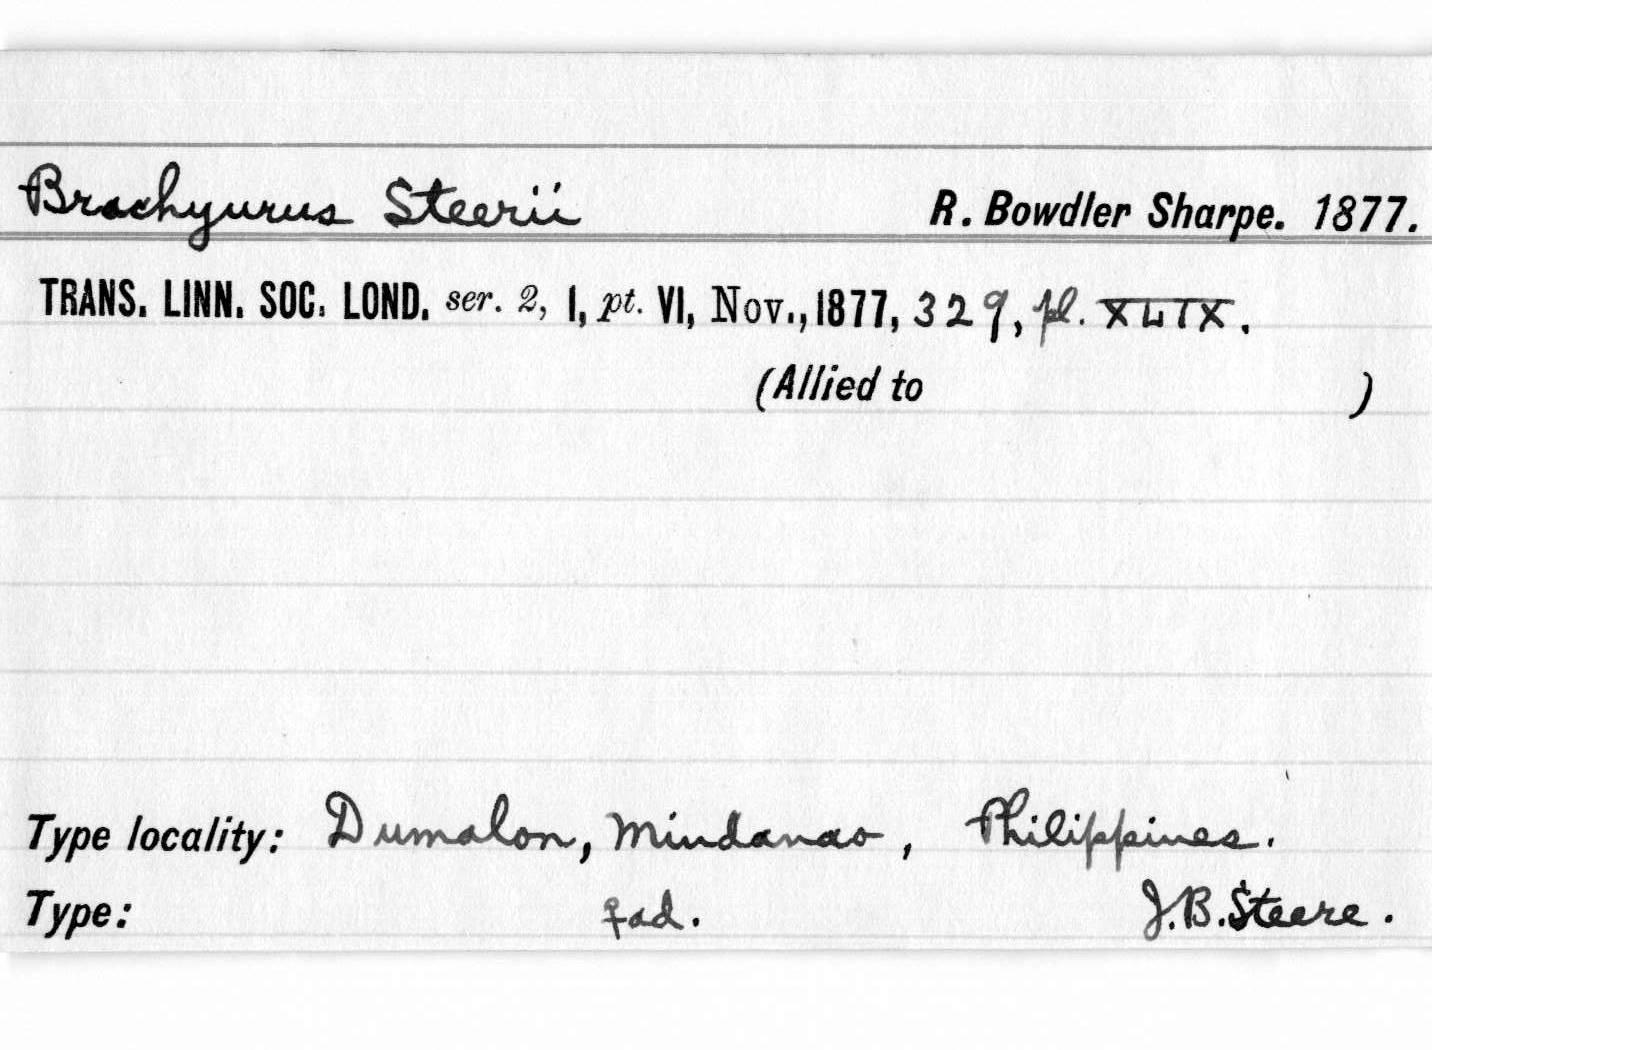 Brachyurus Steerii R. Bowdler Sharpe. 1877.
TRANS. LINN. SOC. LOND. ser. 2, I, pt. VI, Nov., 1877, 329, pl. XLIX.
(Allied to )
Type locality: Dumalon, Mindanao, Philippines.
Type: ♀ad. J.B. Steere.